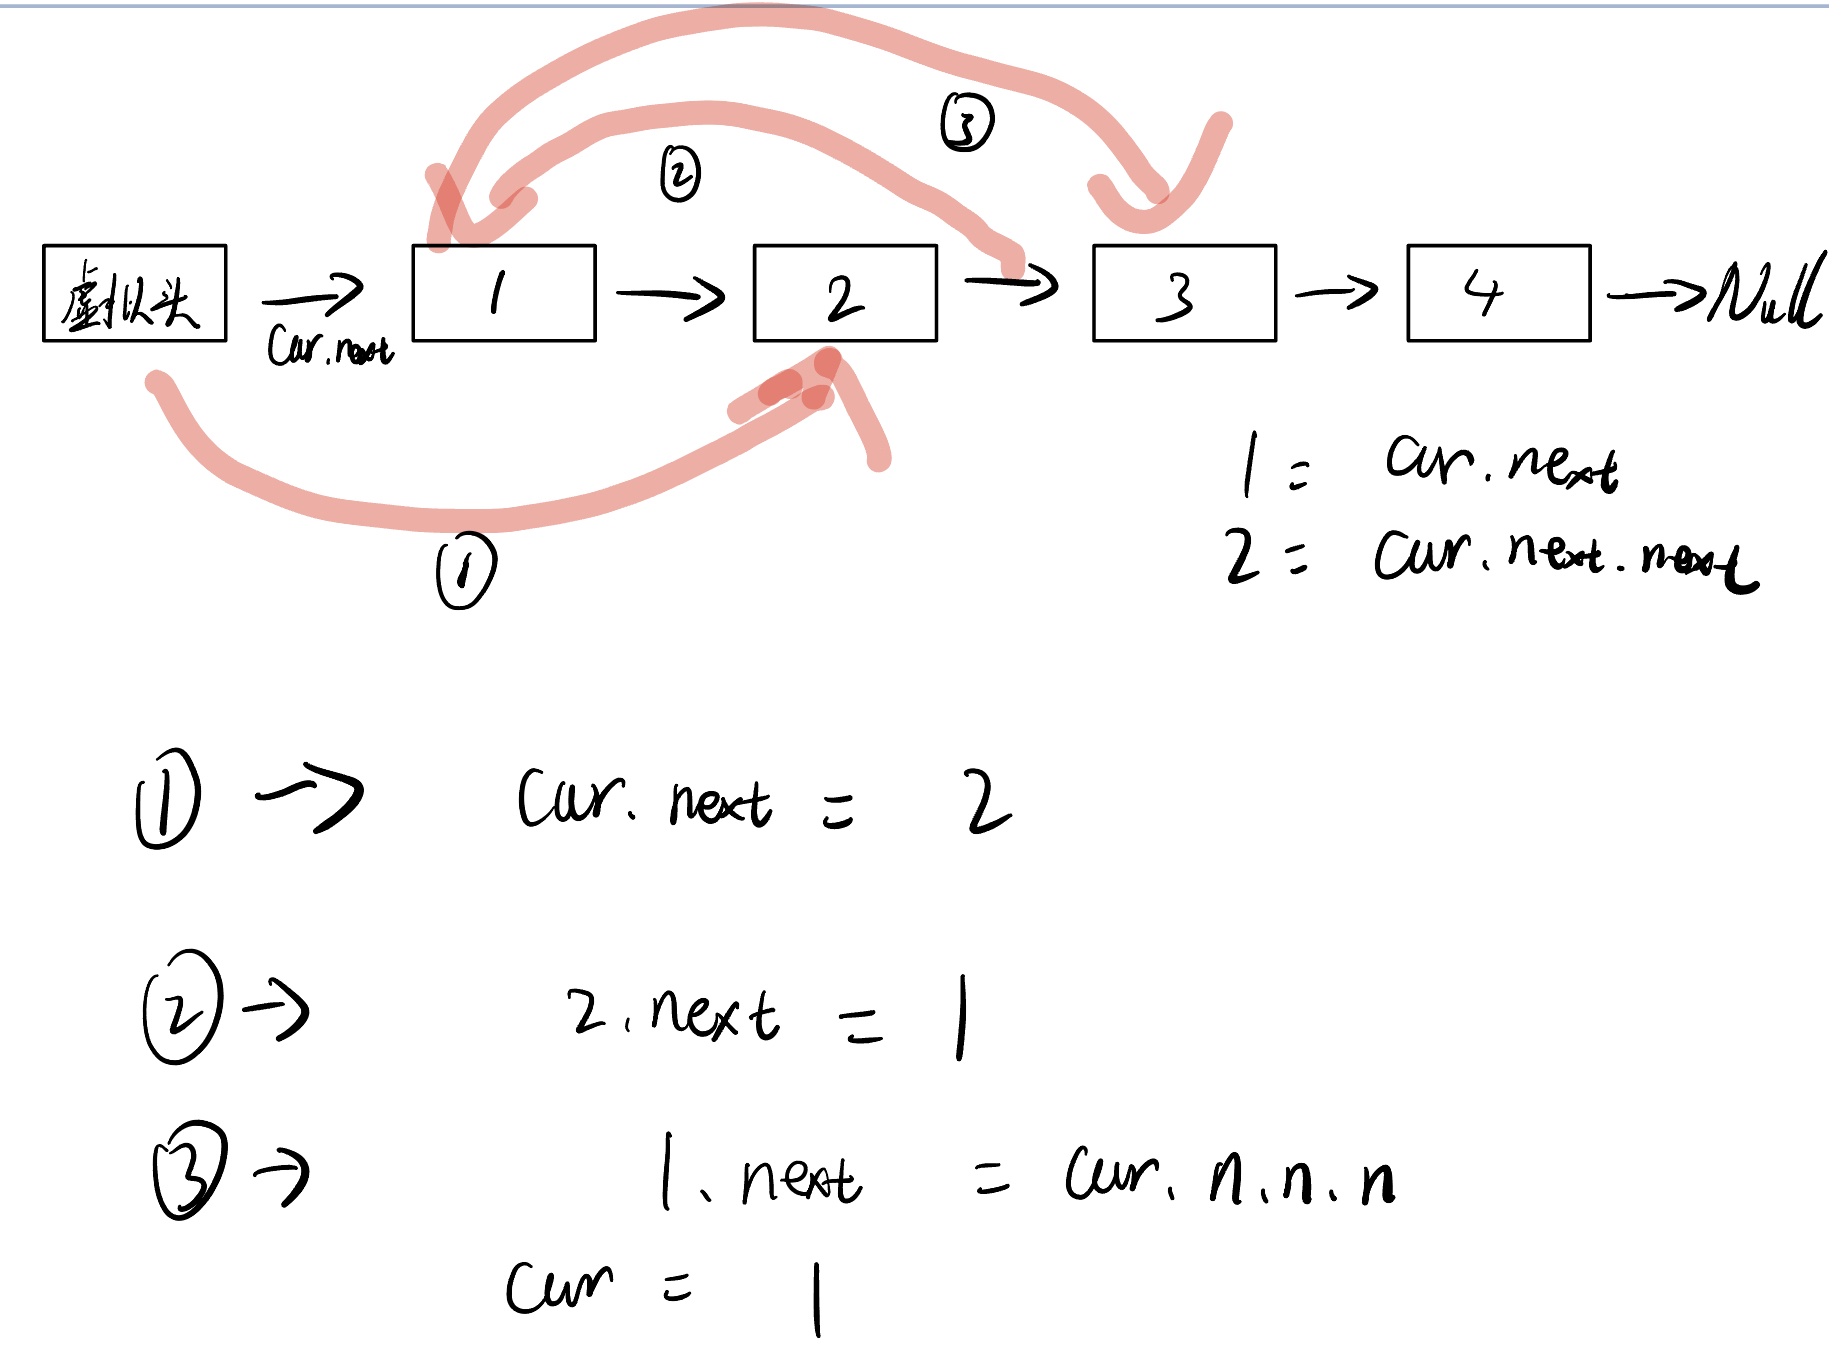 ③
②
虚拟头 → 1 → 2 → 3 → 4 → Null
Cur.next
1 = cur.next
①
2 = cur.next.next
① → Cur.next = 2
② → 2.next = 1
③ → 1.next = cur.n.n.n
cur = 1